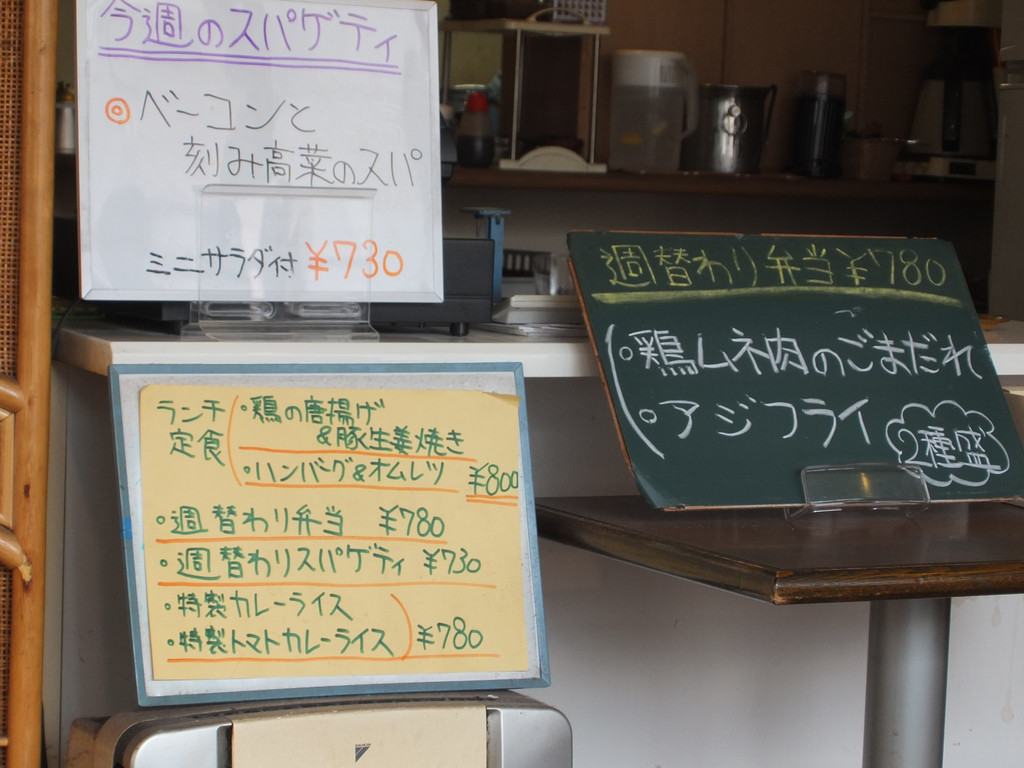 今週のスパゲティ
◎ベーコンと
刻み高菜のスパ
ミニサラダ付 ¥730
週替わり弁当¥780
・鶏ムネ肉のごまだれ
・アジフライ
2種盛
ランチ
定食
・鶏の唐揚げ
&豚生姜焼き
・ハンバーグ&オムレツ ¥800
・週替わり弁当 ¥780
・週替わりスパゲティ ¥730
・特製カレーライス
・特製トマトカレーライス ¥780